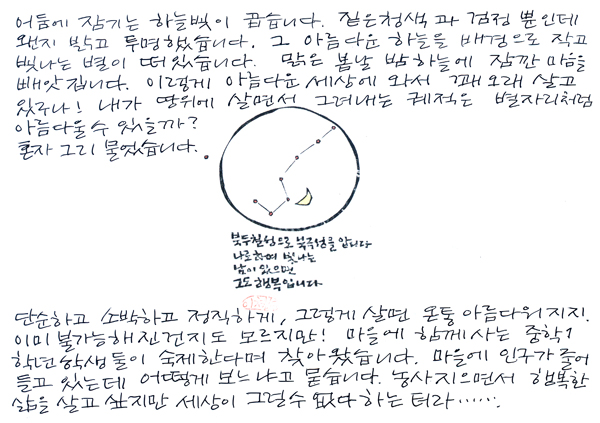 어둠에 잠기는 하늘빛이 곱습니다. 짙은청색과 검정 뿐인데
왠지 밝고 투명했습니다. 그 아름다운 하늘을 배경으로 작고
빛나는 별이 떠있습니다. 맑은 봄날 밤하늘에 잠깐 마음을
빼앗깁니다. 이렇게 아름다운 세상에 와서 꽤 오래 살고
있구나! 내가 땅위에 살면서 그려내는 궤적은 별자리처럼
아름다울 수 있을까?
혼자 그리 물었습니다.
북두칠성으로 북극성을 압니다
나로하여 빛나는
남이 있으면
그도 행복입니다
단순하고 소박하고 정직하게, 그렇게 살면 온통 아름다워지지.
이미 불가능해진건지도 모르지만! 마을에 함께 사는 중학1
학년학생들이 숙제한다며 찾아왔습니다. 마을에 인구가 줄어
들고 있는데 어떻게 보느냐고 묻습니다. 농사지으면서 행복한
삶을 살고 싶지만 세상이 그럴수 없다 하는 터라......